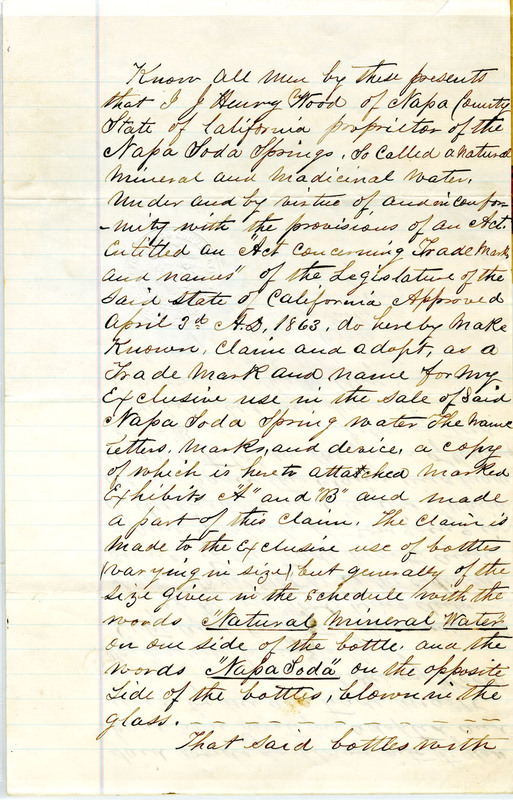 Know all men by these presents
that I J Henry Wood of Napa County
State of California proprietor of the
Napa Soda Springs, So Called a Natural
Mineral and Madicinal Water,
Under and by virtue of and in confor-
-mity with the provisions of an Act.
Entitled an "Act concerning Trade Marks
and names" of the Legislature of the
Said State of California Approved
April 3d A.D. 1863, do hereby Make
Known, Claim and adopt, as a
Trade Mark and name for my
Exclusive use in the sale of Said
Napa Soda Spring water The Name
Letters, Marks, and device, a copy
of which is hereto attatched marked
Exhibits "A" and "B" and made
a part of this claim. The Claim is
Made to the Exclusive use of bottles
(varying in size) but generally of the
Size given in the Schedule with the
words "Natural Mineral Water"
on one side of the bottle, and the
words "Napa Soda" on the opposite
Side of the bottles, blown in the
glass.
That said bottles with